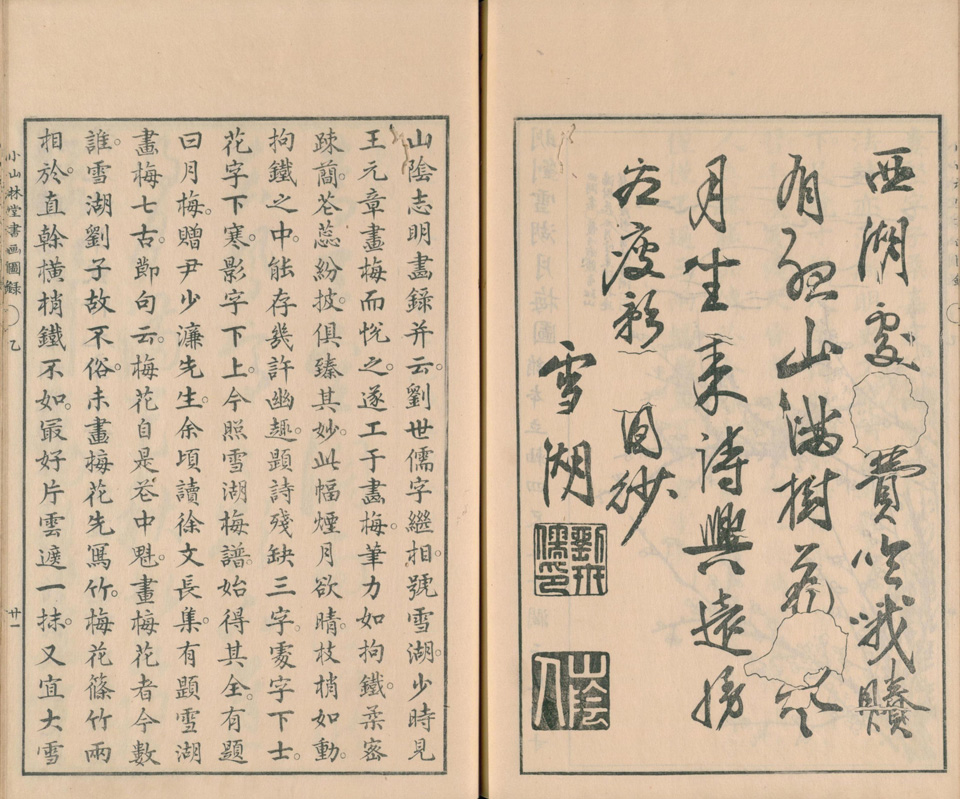 西湖處費吟哦賸
有孤山滿樹花
月坐來詩興遠勝
看瘦影囱紗
雪湖
劉世儒印
山陰人
山陰志明畫錄并云。劉世儒字繼相。號雪湖。少時見
王元章畫梅而悅之。遂工于畫梅。筆力如拘鐵。柔密
疎蕑。花蕊紛披。俱臻其妙。此幅煙月欲晴。枝梢如動。
拘鐵之中。能存幾許幽趣。題詩殘缺三字。處字下士。
花字下寒。影字下上。今照雪湖梅譜。始得其全。有題
曰月梅。贈尹少濂先生。余頃讀徐文長集。有題雪湖
畫梅七古。節句云。梅花自是花中魁。畫梅花者今數
誰。雪湖劉子故不俗。未畫梅花先寫竹。梅花篠竹兩
相於。直榦橫梢鐵不如。最好片雲遮一抹。又宜大雪
小山林堂書画圖錄 乙 廿一